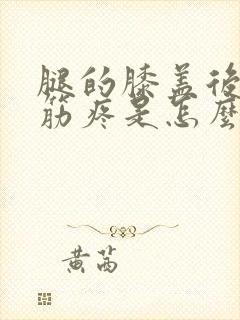 腿的膝盖後
筋疼是怎麼
黄芮